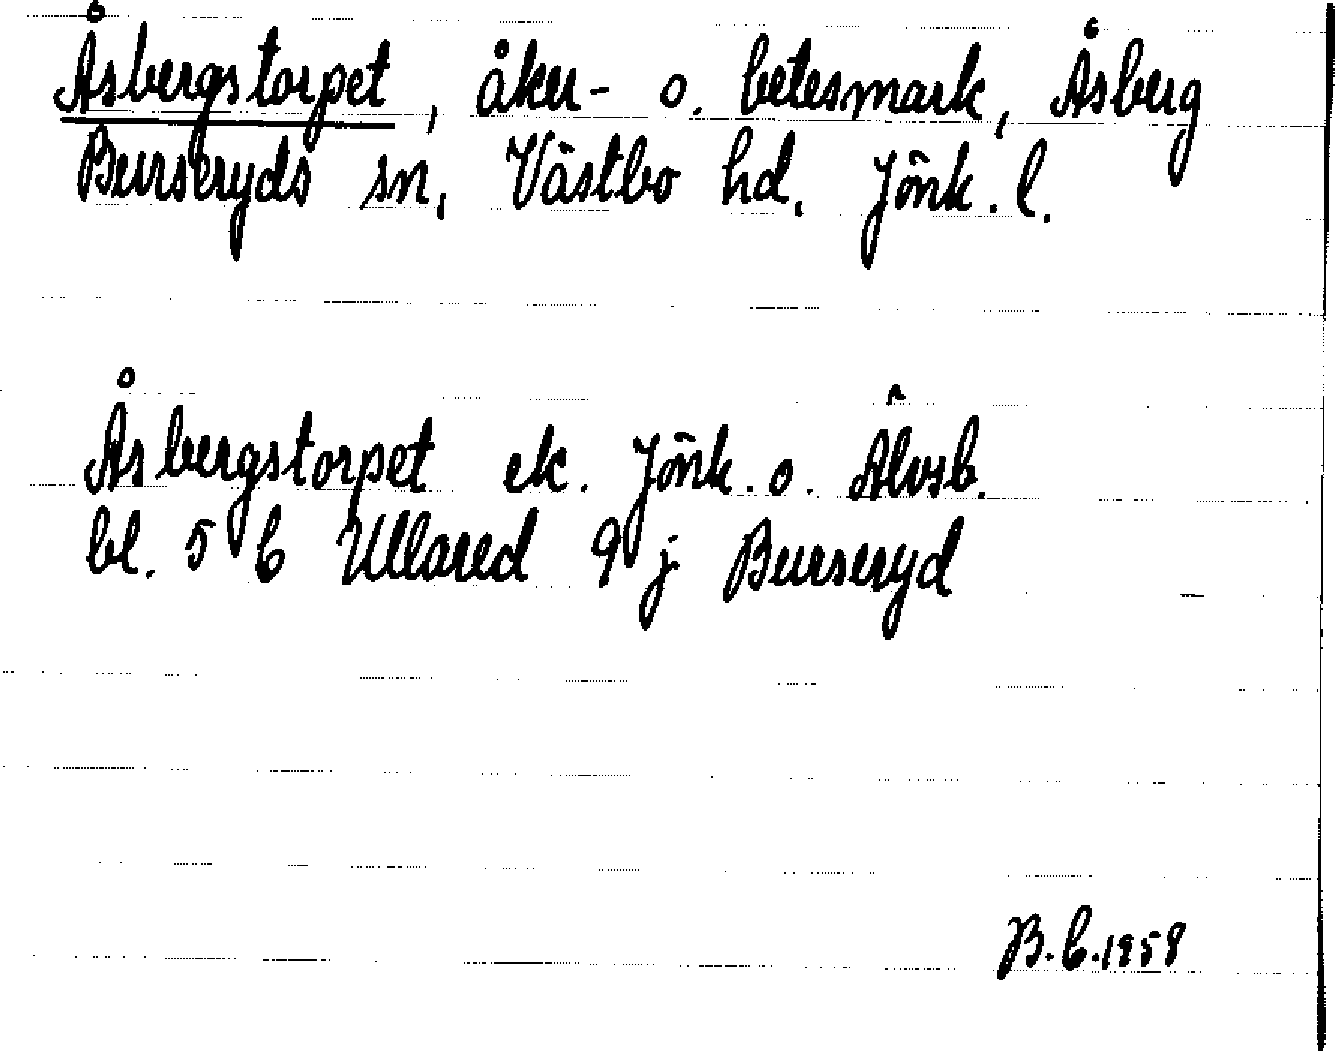 Åsbergstorpet, åker- o. betesmark, Åsberg
Burseryds sn, Västbo hd, Jönk. l.
Åsbergstorpet ek. Jönk. o. Älvsb.
bl. 5 C Ullared 9 j Burseryd
B.C. 1958